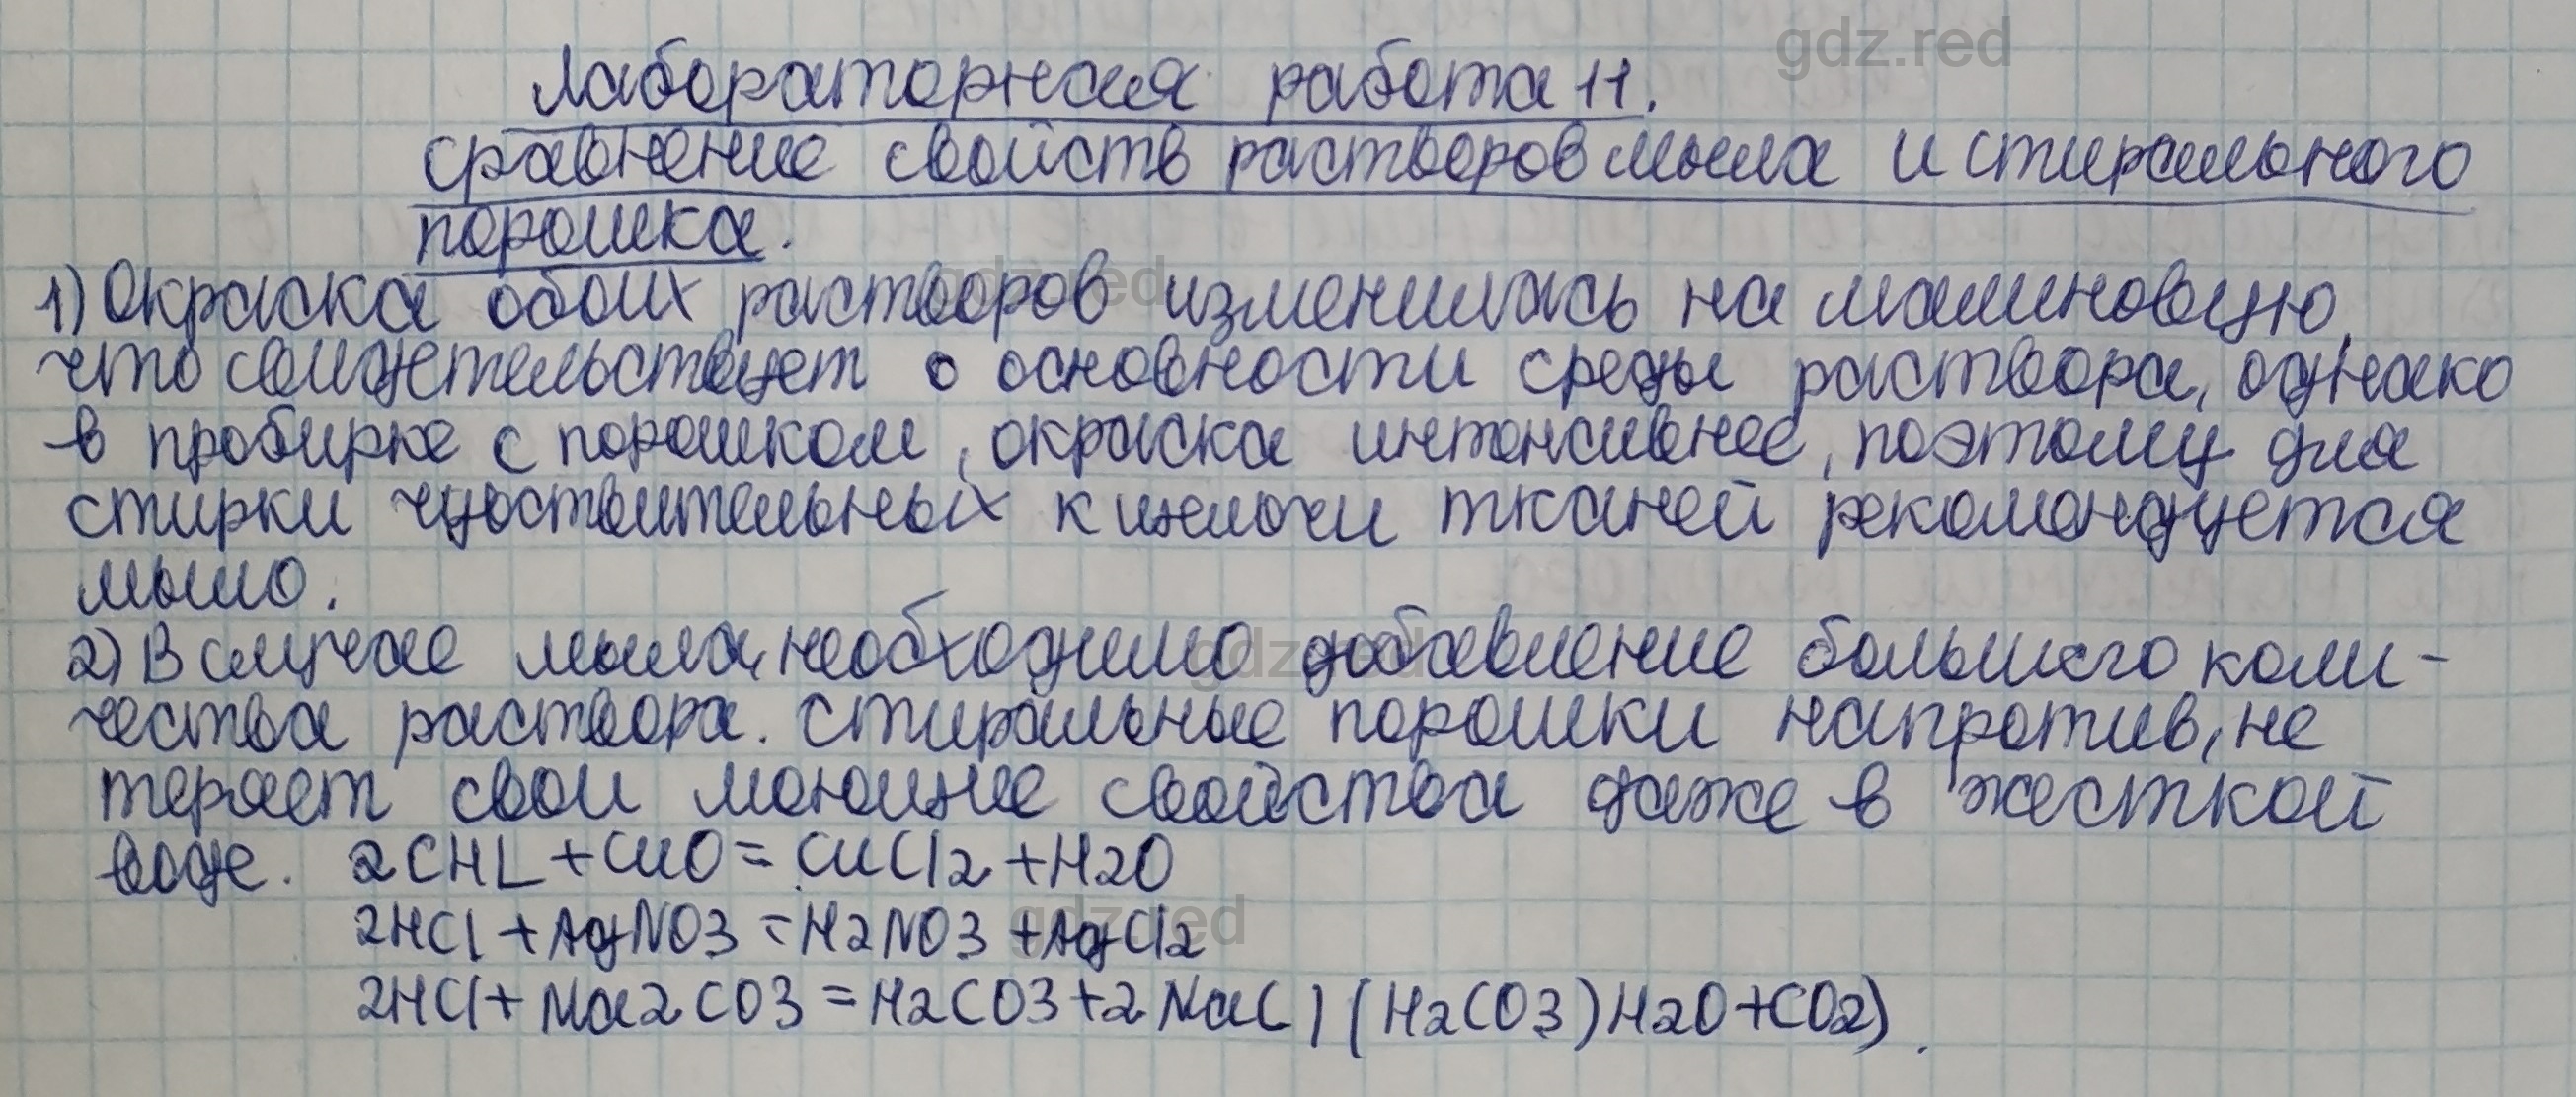 gdz.red
Лабораторная работа 11.
сравнение свойств растворов мыла и стирального
порошка.
gdz.red
1) Окраска обоих растворов изменилась на малиновую,
что свидетельствует о основности среды раствора, однако
в пробирке с порошком, окраска интенсивнее, поэтому для
стирки чувствительных к щелочи тканей рекомендуется
мыло.
gdz.red
2) В случае мыла, необходимо добавление большего коли-
чества раствора. стиральные порошки напротив, не
теряет свои моющие свойства даже в жесткой
воде. 2CHL + CuO = CuCl2 + H2O
gdz.red
2HCl + AgNO3 = H2NO3 + AgCl2
2HCl + Na2CO3 = H2CO3 + 2NaCl (H2CO3) H2O + CO2).